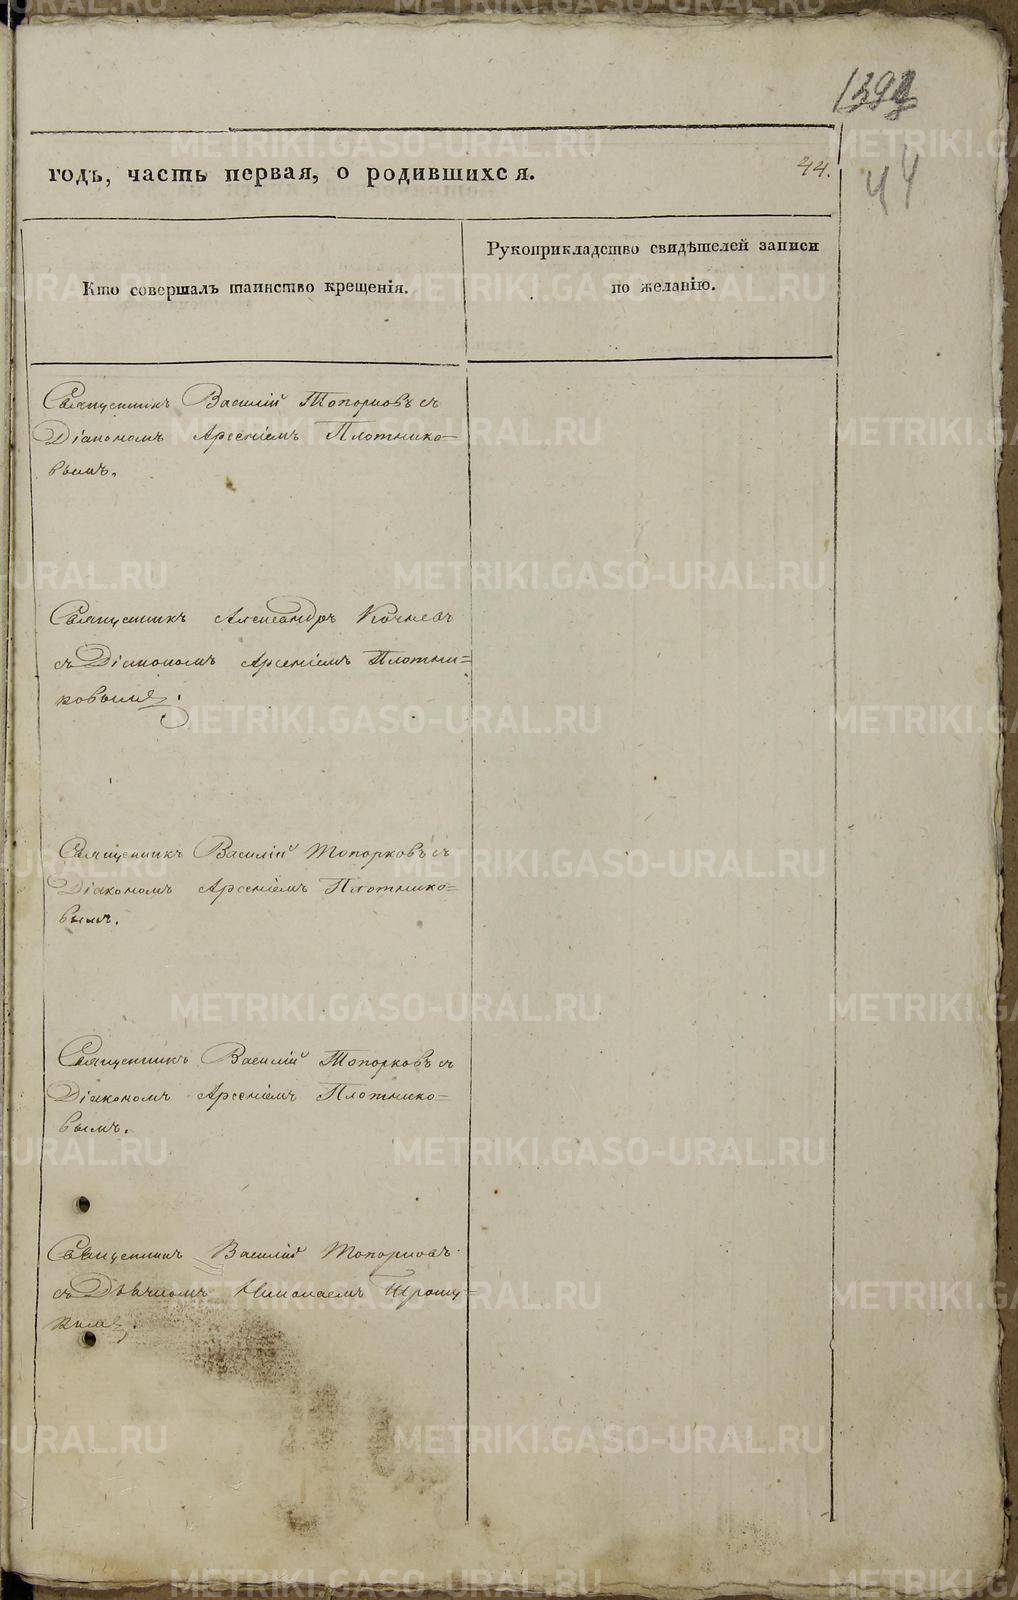 годъ, часть первая, о родившихся.
44.
44
Кто совершалъ таинство крещенія.
Рукоприкладство свидѣтелей записи
по желанію.
Священникъ Василій Топорковъ съ
Діакономъ Арсеніемъ Плотнико-
вымъ.
Священникъ Александръ Кочневъ
съ Діакономъ Арсеніемъ Плотни=
ковымъ.
Священникъ Василій Топорковъ съ
Діакономъ Арсеніемъ Плотнико=
вымъ.
Священникъ Василій Топорковъ съ
Діакономъ Арсеніемъ Плотнико=
вымъ.
Священникъ Василій Топорковъ
съ Дьячкомъ Николаемъ
METRIKI.GASO-URAL.RU